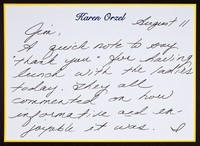 Karen Orzel
August 11
Jim,
A quick note to say
"thank you" for having
lunch with the ladies
today. They all
commented on how
informative and en-
joyable it was. I